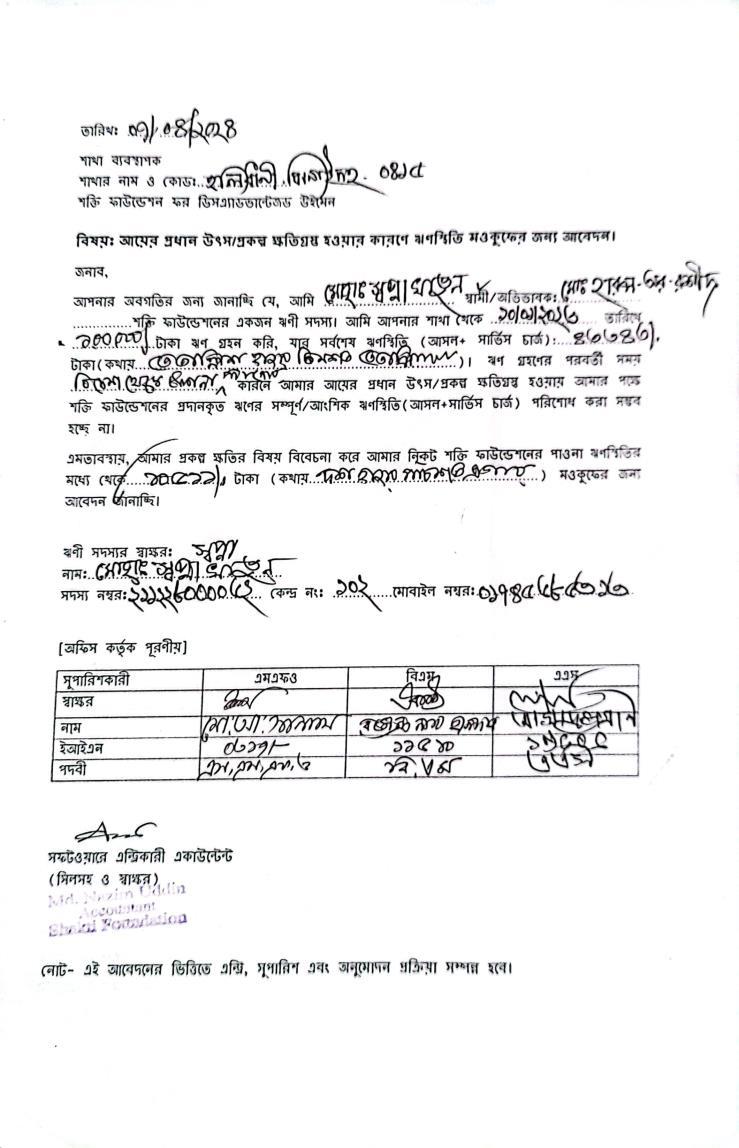 তারিখ: ০৭/০৪/২০২৪
শাখা ব্যবস্থাপক
শাখার নাম ও কোড: ০৪১৫
শক্তি ফাউন্ডেশন ফর ডিসএ্যাডভান্টেজড উইমেন
বিষয়: আয়ের প্রধান উৎস/প্রকল্প ক্ষতিগ্রস্ত হওয়ার কারণে ঋণস্থিতি মওকুফের জন্য আবেদন।
জনাব,
আপনার অবগতির জন্য জানাচ্ছি যে, আমি মোছাঃ স্বপ্না খাতুন স্বামী/অভিভাবক: মোঃ হারুন-অর-রশীদ
শক্তি ফাউন্ডেশনের একজন ঋণী সদস্য। আমি আপনার শাখা থেকে তারিখে
১০০০০০/ টাকা ঋণ গ্রহন করি, যার সর্বশেষ ঋণস্থিতি (আসল+ সার্ভিস চার্জ): ৪৩৩৪৩/
টাকা(কথায় তেতাল্লিশ হাজার তিনশত তেতাল্লিশ)। ঋণ গ্রহণের পরবর্তী সময়
কারনে আমার আয়ের প্রধান উৎস/প্রকল্প ক্ষতিগ্রস্ত হওয়ায় আমার পক্ষে
শক্তি ফাউন্ডেশনের প্রদানকৃত ঋণের সম্পূর্ণ/আংশিক ঋণস্থিতি(আসল+সার্ভিস চার্জ) পরিশোধ করা সম্ভব
হচ্ছে না।
এমতাবস্থায়, আমার প্রকল্প ক্ষতির বিষয় বিবেচনা করে আমার নিকট শক্তি ফাউন্ডেশনের পাওনা ঋণস্থিতির
মধ্যে থেকে টাকা (কথায় দশ হাজার পাঁচশত) মওকুফের জন্য
আবেদন জানাচ্ছি।
ঋণী সদস্যর স্বাক্ষর: স্বপ্না
নাম: মোছাঃ স্বপ্না খাতুন
সদস্য নম্বর: কেন্দ্র নং: ১০২ মোবাইল নম্বর:
[অফিস কর্তৃক পূরণীয়]
সুপারিশকারী এমএফও বিএম এএস
স্বাক্ষর
নাম
ইআইএন ১১৫১০
পদবী বি.এম
সফটওয়ারে এন্ট্রিকারী একাউন্টেন্ট
(সিলসহ ও স্বাক্ষর)
Md. Nazim Uddin
Accountant
Shakti Foundation
নোট- এই আবেদনের ভিত্তিতে এন্ট্রি, সুপারিশ এবং অনুমোদন প্রক্রিয়া সম্পন্ন হবে।